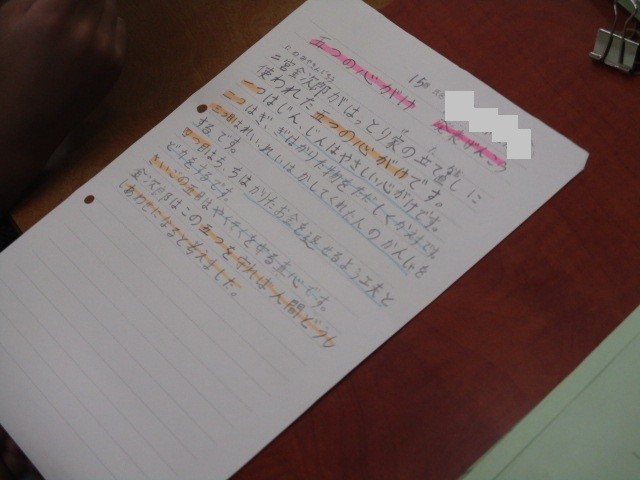 五つの心がけ
15
にのみやきんじろう
二宮金次郎がはっとり家の立て直しに
使われた五つの心がけです。
一つはじん、じんはやさしい心がけです。
二つはぎ、ぎはかりた物をただしくかえす
三つ目はれい、れいはかしてくれた人のかんしゃを
する です。
四つ目はち、ちはかりたお金を返せるよう工夫と
ど力をするです。
さいごの五つ目は やくそくを守る 心です。
金次郎はこの五つを守れば人間どうし
しあわせになると考えました。